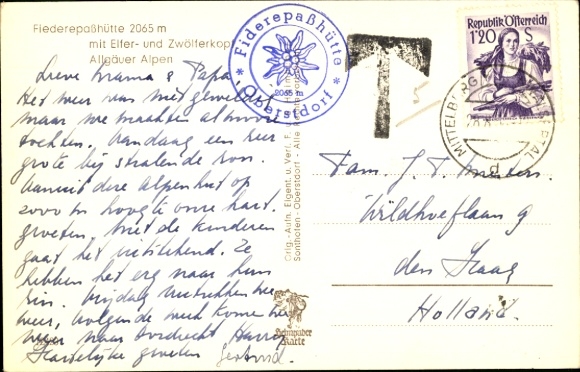 Fiederepaßhütte 2065 m
mit Elfer- und Zwölferkopf
Allgäuer Alpen
Lieve Mama & Papa
Het weer was niet geweldig
maar we maakten al mooie
tochten. Vandaag een heel
grote bij stralende zon.
Vanuit deze alpenhut op
2000 m hoogte onze hart.
groeten. Met de kinderen
gaat het uitstekend. Ze
hebben het erg naar hun
zin. Vrijdag vertrekken we
weer, volgende week komen we
weer naar Dordrecht
Hartelijke groeten Gertrud.
* Fiderepaßhütte *
2065 m
Oberstdorf
Orig.-Aufn. Eigent. u. Verl. F.
Sonthofen-Oberstdorf - Alle
T
Republik Österreich
1'20 S
MITTELBERG
TAL
d
Fam. J. T.
Wildhoeflaan 9
den Haag
Holland.
Karte